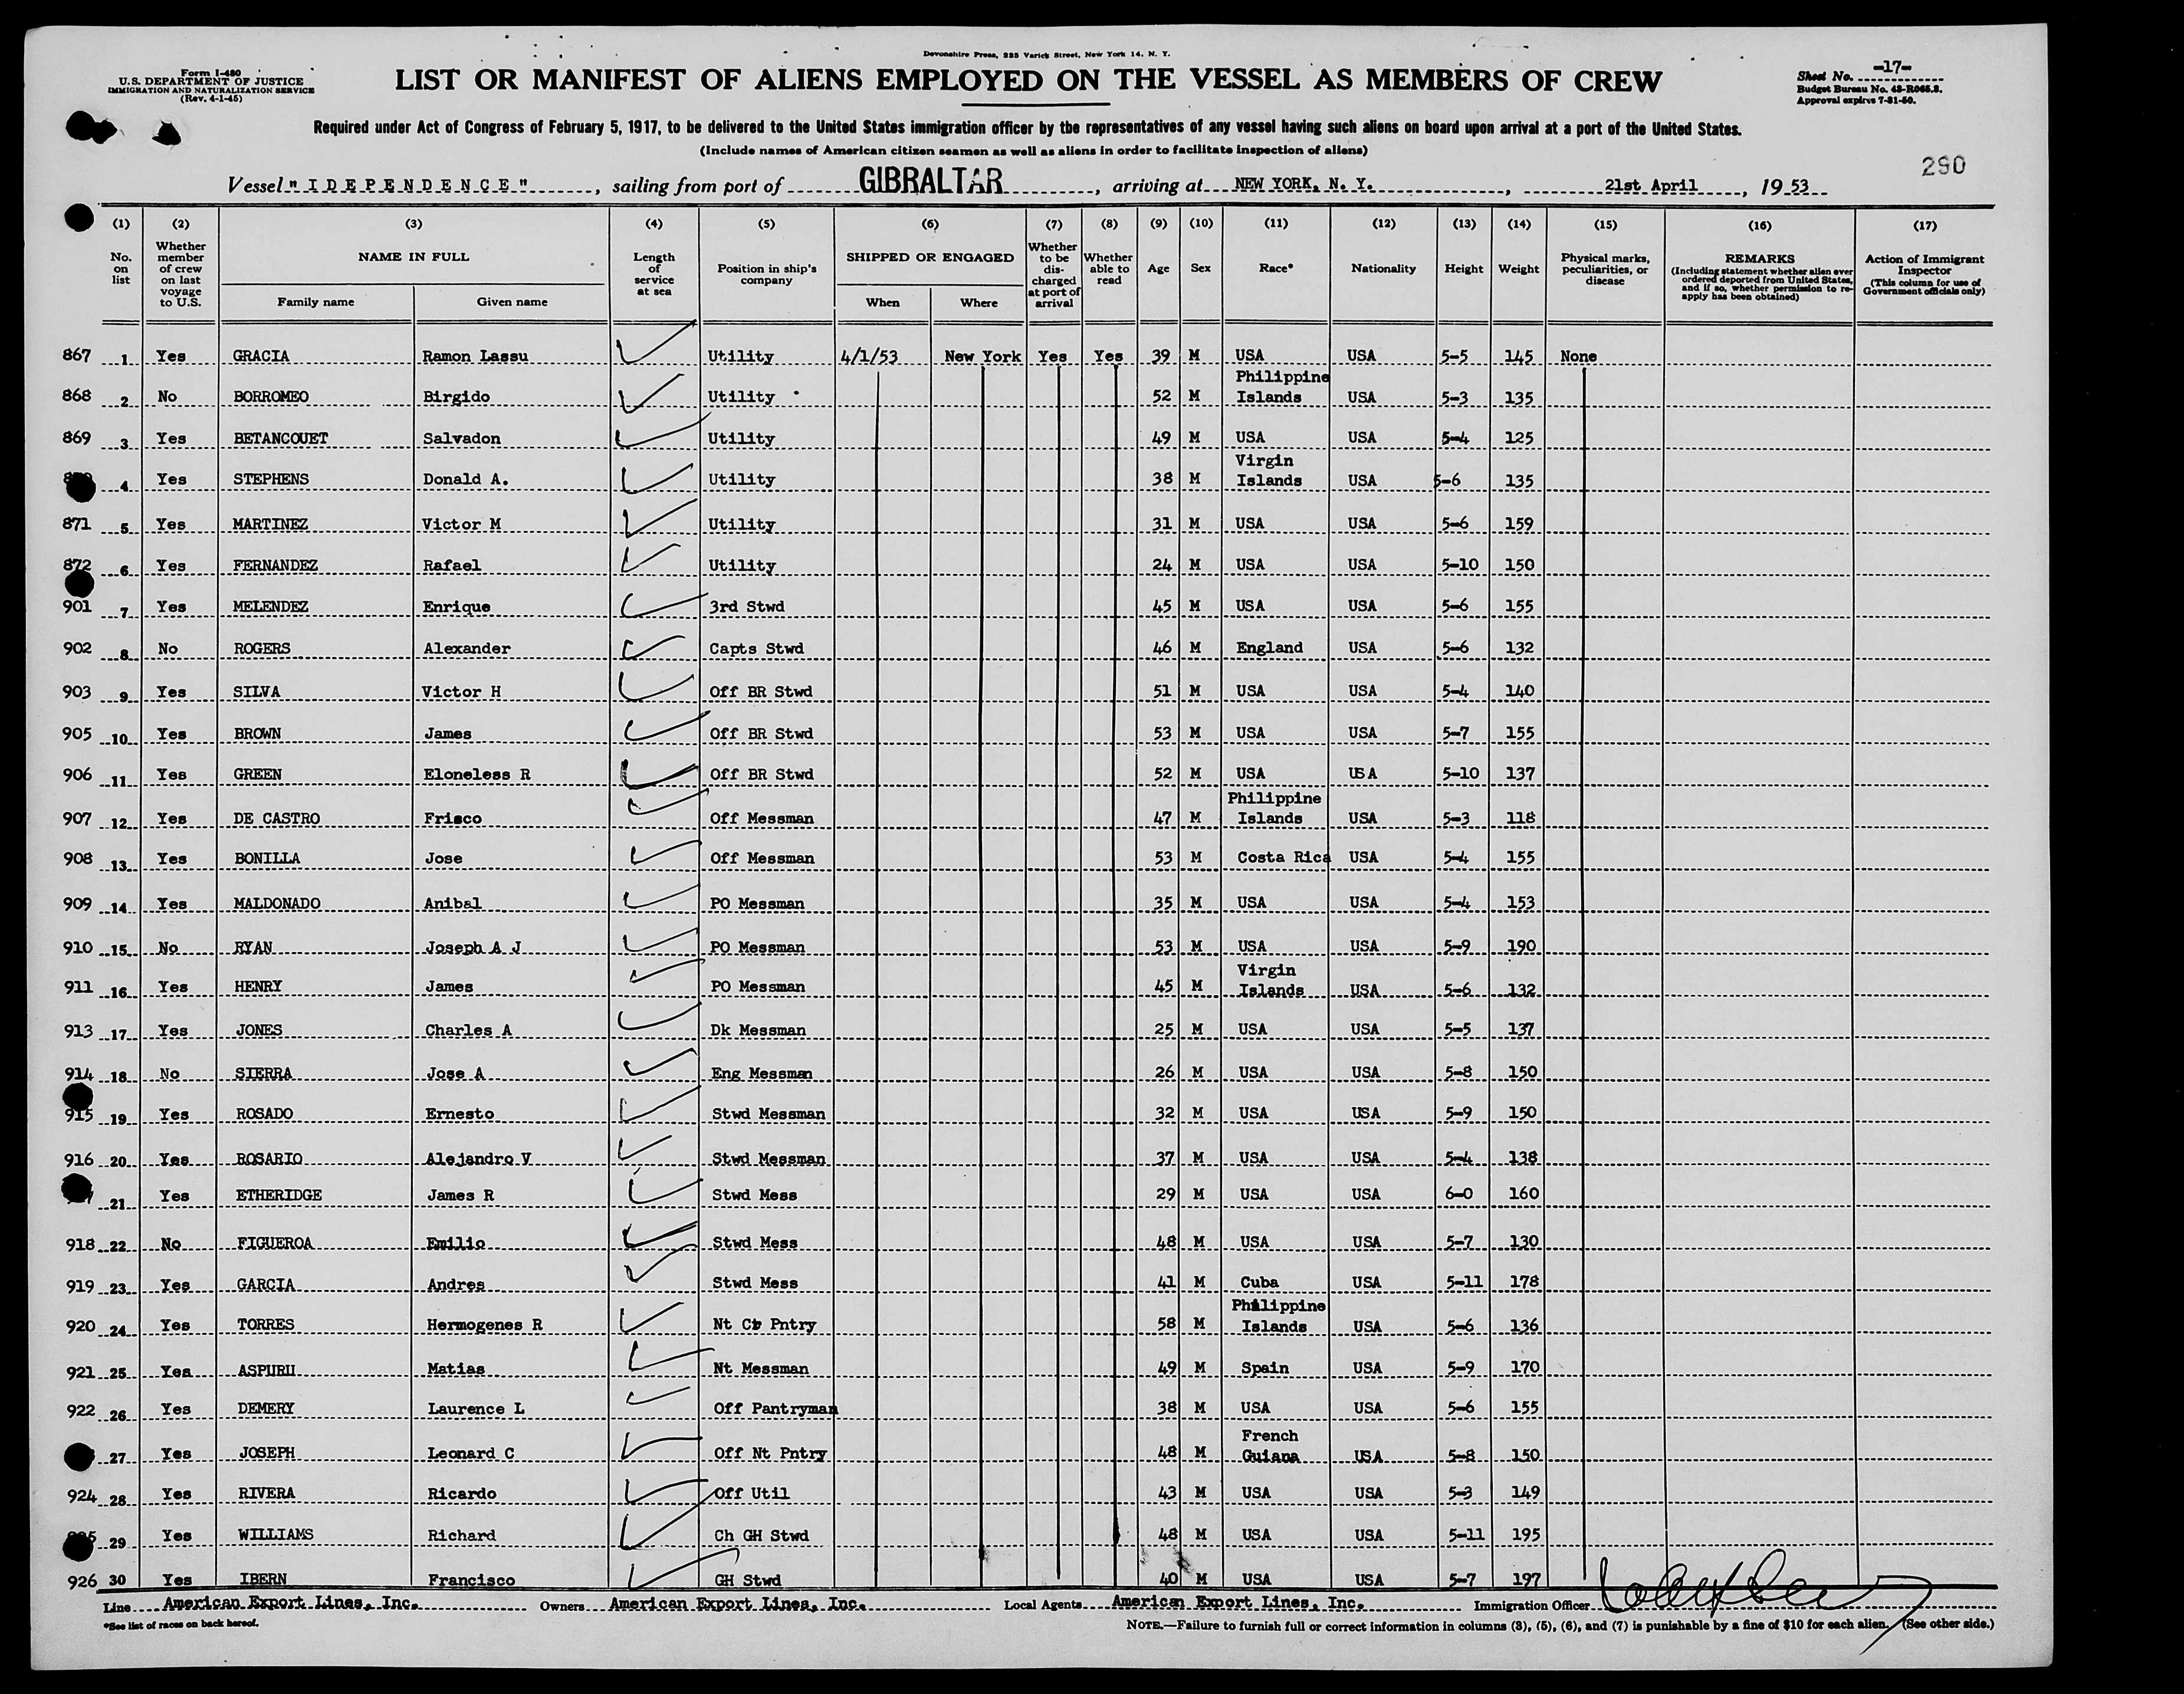 Devonshire Press, 225 Varick Street, New York 14, N. Y.
Form I-480
U.S. DEPARTMENT OF JUSTICE
IMMIGRATION AND NATURALIZATION SERVICE
(Rev. 4-1-45)
LIST OR MANIFEST OF ALIENS EMPLOYED ON THE VESSEL AS MEMBERS OF CREW
Sheet No. -17-
Budget Bureau No. 43-R065.3.
Approval expires 7-31-50.
Required under Act of Congress of February 5, 1917, to be delivered to the United States immigration officer by the representatives of any vessel having such aliens on board upon arrival at a port of the United States.
(Include names of American citizen seamen as well as aliens in order to facilitate inspection of aliens)
290
Vessel "IDEPENDENCE", sailing from port of GIBRALTAR, arriving at NEW YORK, N. Y., 21st April, 1953
(1) (2) (3) (4) (5) (6) (7) (8) (9) (10) (11) (12) (13) (14) (15) (16) (17)
No. on list
Whether member of crew on last voyage to U.S.
NAME IN FULL
Family name
Given name
Length of service at sea
Position in ship's company
SHIPPED OR ENGAGED
When
Where
Whether to be discharged at port of arrival
Whether able to read
Age
Sex
Race*
Nationality
Height
Weight
Physical marks, peculiarities, or disease
REMARKS
(Including statement whether alien ever ordered deported from United States, and if so, whether permission to re-apply has been obtained)
Action of Immigrant Inspector
(This column for use of Government officials only)
867 1 Yes GRACIA Ramon Lassu Utility 4/1/53 New York Yes Yes 39 M USA USA 5-5 145 None
868 2 No BORROMEO Birgido Utility 52 M Philippine Islands USA 5-3 135
869 3 Yes BETANCOUET Salvadon Utility 49 M USA USA 5-4 125
4 Yes STEPHENS Donald A. Utility 38 M Virgin Islands USA 5-6 135
871 5 Yes MARTINEZ Victor M Utility 31 M USA USA 5-6 159
872 6 Yes FERNANDEZ Rafael Utility 24 M USA USA 5-10 150
901 7 Yes MELENDEZ Enrique 3rd Stwd 45 M USA USA 5-6 155
902 8 No ROGERS Alexander Capts Stwd 46 M England USA 5-6 132
903 9 Yes SILVA Victor H Off BR Stwd 51 M USA USA 5-4 140
905 10 Yes BROWN James Off BR Stwd 53 M USA USA 5-7 155
906 11 Yes GREEN Eloneless R Off BR Stwd 52 M USA USA 5-10 137
907 12 Yes DE CASTRO Frisco Off Messman 47 M Philippine Islands USA 5-3 118
908 13 Yes BONILLA Jose Off Messman 53 M Costa Rica USA 5-4 155
909 14 Yes MALDONADO Anibal PO Messman 35 M USA USA 5-4 153
910 15 No RYAN Joseph A J PO Messman 53 M USA USA 5-9 190
911 16 Yes HENRY James PO Messman 45 M Virgin Islands USA 5-6 132
913 17 Yes JONES Charles A Dk Messman 25 M USA USA 5-5 137
914 18 No SIERRA Jose A Eng Messman 26 M USA USA 5-8 150
915 19 Yes ROSADO Ernesto Stwd Messman 32 M USA USA 5-9 150
916 20 Yes ROSARIO Alejandro V Stwd Messman 37 M USA USA 5-4 138
21 Yes ETHERIDGE James R Stwd Mess 29 M USA USA 6-0 160
918 22 No FIGUEROA Emilio Stwd Mess 48 M USA USA 5-7 130
919 23 Yes GARCIA Andres Stwd Mess 41 M Cuba USA 5-11 178
920 24 Yes TORRES Hermogenes R Nt Pntry 58 M Philippine Islands USA 5-6 136
921 25 Yes ASPURU Matias Nt Messman 49 M Spain USA 5-9 170
922 26 Yes DEMERY Laurence L Off Pantryman 38 M USA USA 5-6 155
27 Yes JOSEPH Leonard C Off Nt Pntry 48 M French Guiana USA 5-8 150
924 28 Yes RIVERA Ricardo Off Util 43 M USA USA 5-3 149
29 Yes WILLIAMS Richard Ch GH Stwd 48 M USA USA 5-11 195
926 30 Yes IBERN Francisco GH Stwd 40 M USA USA 5-7 197
Line American Export Lines, Inc. Owners American Export Lines, Inc. Local Agents American Export Lines, Inc. Immigration Officer
*See list of races on back hereof.
NOTE.—Failure to furnish full or correct information in columns (3), (5), (6), and (7) is punishable by a fine of $10 for each alien. (See other side.)